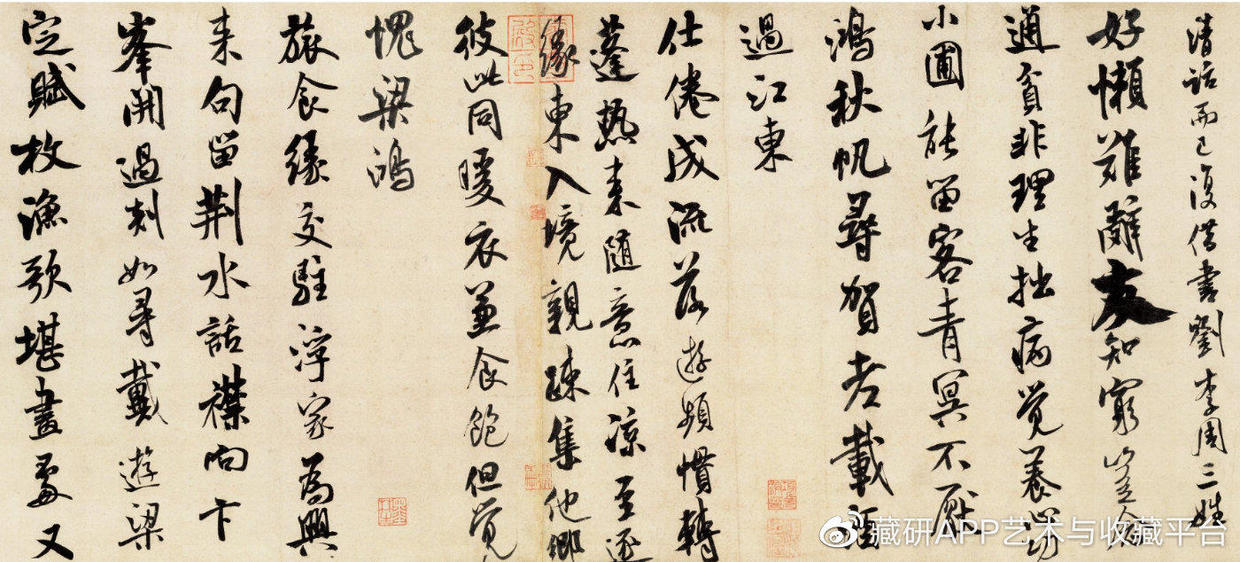 清話而已復借書劉李周三姓
好懶難辭友知窮豈念
通貧非理生拙病覺養心功
小圃能留客青冥不厭
鴻秋帆尋賀老載酒
過江東
仕倦成流落遊頻慣轉
蓬熱来隨意住涼至逐
緣東入境親疎集他鄉
彼此同暖衣兼食飽但覺
愧梁鴻
旅食緣交駐浮家為興
来句留荆水話襟向卞
峯開過剡如尋戴遊梁
定賦枚漁歌堪畫處又
藏研APP艺术与收藏平台